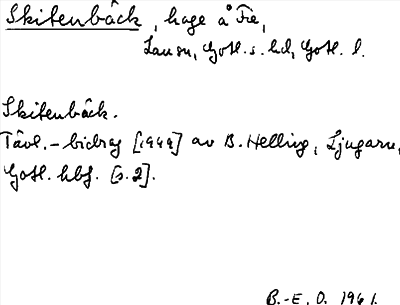 Skitenbäck, hage å Fie,
Lau sn, Gotl. s. hd, Gotl. l.
Skitenbäck.
Tävl.-bidrag [1949] av B. Helling, Ljugarn,
Gotl. hbf. [s. 2].
B.-E. O. 1961.